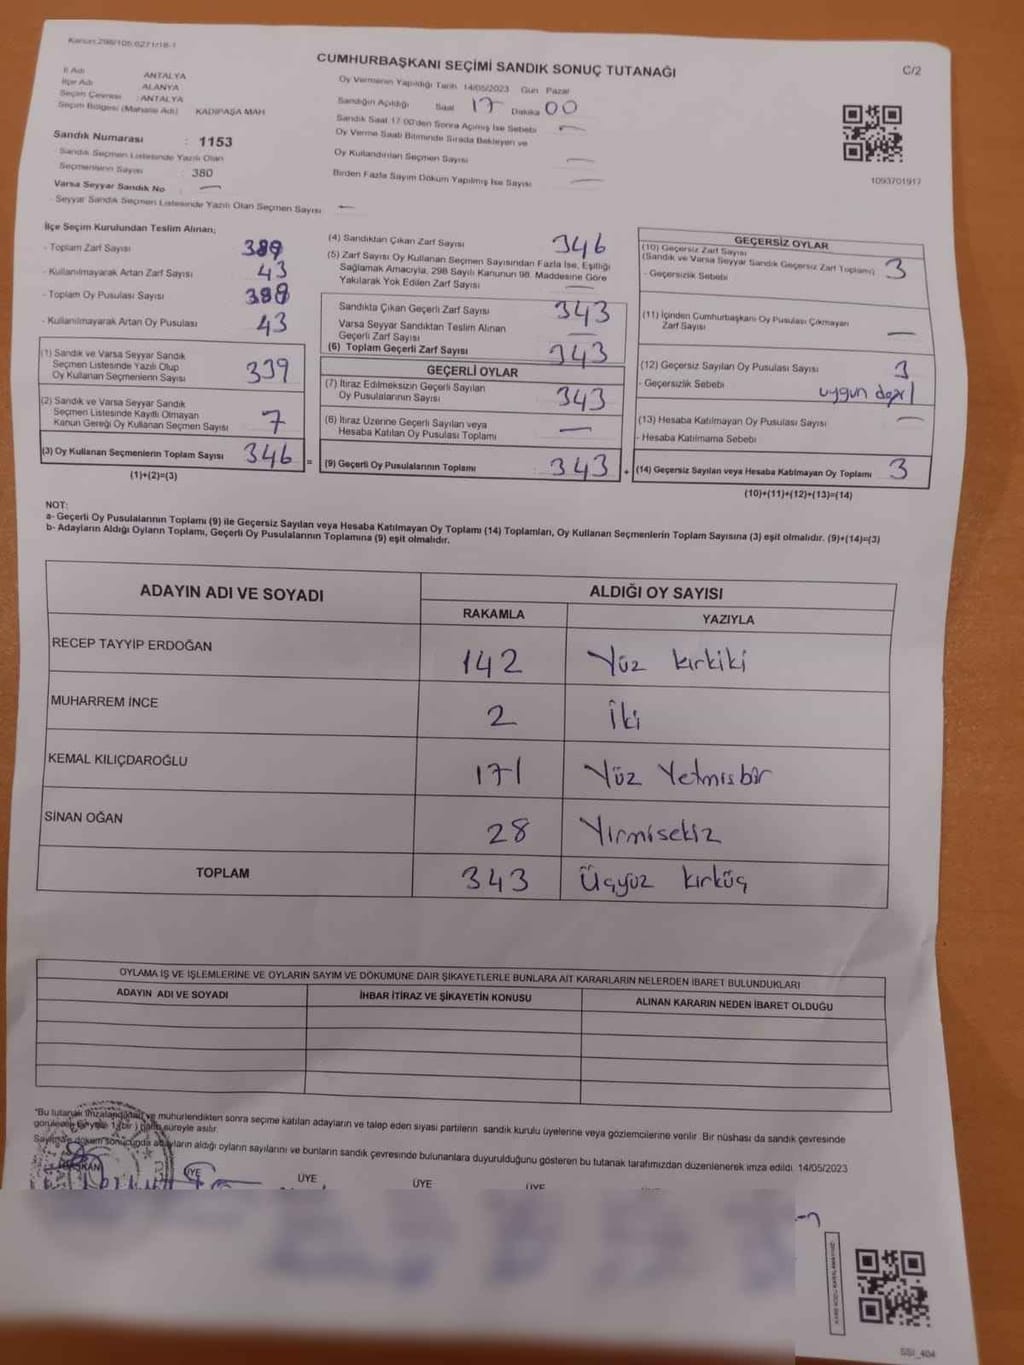 Kanun:298/105,6271/18-1
CUMHURBAŞKANI SEÇİMİ SANDIK SONUÇ TUTANAĞI
C/2
İl Adı : ANTALYA
İlçe Adı : ALANYA
Seçim Çevresi : ANTALYA
Seçim Bölgesi (Mahalle Adı) KADIPAŞA MAH
Sandık Numarası : 1153
Sandık Seçmen Listesinde Yazılı Olan
Seçmenlerin Sayısı : 380
Varsa Seyyar Sandık No —
- Seyyar Sandık Seçmen Listesinde Yazılı Olan Seçmen Sayısı —
Oy Vermenin Yapıldığı Tarih 14/05/2023 Gün Pazar
Sandığın Açıldığı Saat 17 Dakika 00
Sandık Saat 17.00'den Sonra Açılmış İse Sebebi —
Oy Verme Saati Bitiminde Sırada Bekleyen ve
Oy Kullandırılan Seçmen Sayısı —
Birden Fazla Sayım Döküm Yapılmış İse Sayısı —
1093701917
İlçe Seçim Kurulundan Teslim Alınan;
- Toplam Zarf Sayısı 389
- Kullanılmayarak Artan Zarf Sayısı 43
- Toplam Oy Pusulası Sayısı
- Kullanılmayarak Artan Oy Pusulası 43
(1) Sandık ve Varsa Seyyar Sandık
Seçmen Listesinde Yazılı Olup
Oy Kullanan Seçmenlerin Sayısı 339
(2) Sandık ve Varsa Seyyar Sandık
Seçmen Listesinde Kayıtlı Olmayan
Kanun Gereği Oy Kullanan Seçmen Sayısı 7
(3) Oy Kullanan Seçmenlerin Toplam Sayısı 346 =
(1)+(2)=(3)
(4) Sandıktan Çıkan Zarf Sayısı 346
(5) Zarf Sayısı Oy Kullanan Seçmen Sayısından Fazla İse, Eşitliği
Sağlamak Amacıyla, 298 Sayılı Kanunun 98. Maddesine Göre
Yakılarak Yok Edilen Zarf Sayısı —
Sandıkta Çıkan Geçerli Zarf Sayısı 343
Varsa Seyyar Sandıktan Teslim Alınan
Geçerli Zarf Sayısı —
(6) Toplam Geçerli Zarf Sayısı 343
GEÇERLİ OYLAR
(7) İtiraz Edilmeksizin Geçerli Sayılan
Oy Pusulalarının Sayısı 343
(8) İtiraz Üzerine Geçerli Sayılan veya
Hesaba Katılan Oy Pusulaları Toplamı —
(9) Geçerli Oy Pusulalarının Toplamı 343 +
GEÇERSİZ OYLAR
(10) Geçersiz Zarf Sayısı
(Sandık ve Varsa Seyyar Sandık Geçersiz Zarf Toplamı) 3
- Geçersizlik Sebebi
(11) İçinden Cumhurbaşkanı Oy Pusulası Çıkmayan
Zarf Sayısı —
(12) Geçersiz Sayılan Oy Pusulası Sayısı 3
- Geçersizlik Sebebi uygun değil
(13) Hesaba Katılmayan Oy Pusulası Sayısı —
- Hesaba Katılmama Sebebi
(14) Geçersiz Sayılan veya Hesaba Katılmayan Oy Toplamı 3
(10)+(11)+(12)+(13)=(14)
NOT:
a- Geçerli Oy Pusulalarının Toplamı (9) ile Geçersiz Sayılan veya Hesaba Katılmayan Oy Toplamı (14) Toplamları, Oy Kullanan Seçmenlerin Toplam Sayısına (3) eşit olmalıdır. (9)+(14)=(3)
b- Adayların Aldığı Oyların Toplamı, Geçerli Oy Pusulalarının Toplamına (9) eşit olmalıdır.
ADAYIN ADI VE SOYADI
ALDIĞI OY SAYISI
RAKAMLA
YAZIYLA
RECEP TAYYİP ERDOĞAN 142 Yüz kırkiki
MUHARREM İNCE 2 İki
KEMAL KILIÇDAROĞLU 171 Yüz Yetmişbir
SİNAN OĞAN 28 Yirmisekiz
TOPLAM 343 Üçyüz kırküç
OYLAMA İŞ VE İŞLEMLERİNE VE OYLARIN SAYIM VE DÖKÜMÜNE DAİR ŞİKAYETLERLE BUNLARA AİT KARARLARIN NELERDEN İBARET BULUNDUKLARI
ADAYIN ADI VE SOYADI
İHBAR İTİRAZ VE ŞİKAYETİN KONUSU
ALINAN KARARIN NEDEN İBARET OLDUĞU
"Bu tutanak imzalandıktan ve mühürlendikten sonra seçime katılan adayların ve talep eden siyasi partilerin sandık kurulu üyelerine veya gözlemcilerine verilir. Bir nüshası da sandık çevresinde
süreyle asılır.
Sayım ve döküm sonucunda adayların aldığı oyların sayılarını ve bunların sandık çevresinde bulunanlara duyurulduğunu gösteren bu tutanak tarafımızdan düzenlenerek imza edildi. 14/05/2023
BAŞKAN
ÜYE
ÜYE
ÜYE
ÜYE
SSI_404